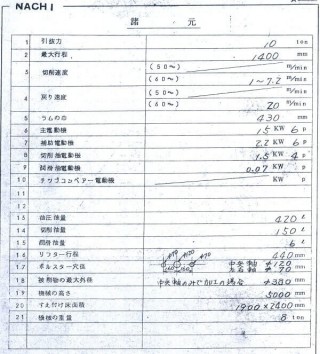 NACHI
諸元
1 引抜力 10 ton
2 最大行程 1400 mm
3 切削速度 (50〜) m/min
(60〜) 1〜7.2 m/min
4 戻り速度 (50〜) m/min
(60〜) 20 m/min
5 ラムの巾 430 mm
6 主電動機 15 KW 6 P
7 補助電動機 2.2 KW 6 P
8 切削油電動機 1.5 KW 4 P
9 潤滑油電動機 0.07 KW P
10 チップコンベアー電動機 KW P
11
12
13 油圧油量 420 ℓ
14 切削油量 150 ℓ
15 潤滑油量 6 ℓ
16 リフター行程 440 mm
17 ボルスター穴径 中央軸 φ120
左右軸 φ70
18 被削物の最大外径 中央軸のみで加工の場合 φ380 mm
19 機械の高さ 5000 mm
20 すえ付け床面積 1900×2400 mm
21 機械の重量 8 ton